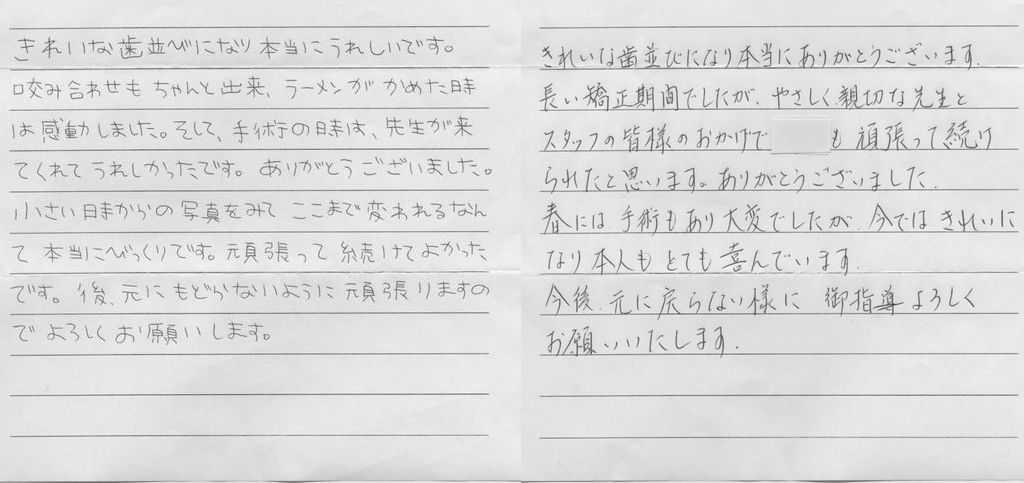 きれいな歯並びになり本当にうれしいです。
咬み合わせもちゃんと出来、ラーメンがかめた時
は感動しました。そして、手術の時は、先生が来
てくれてうれしかったです。ありがとうございました。
小さい時からの写真をみてここまで変われるなん
て本当にびっくりです。頑張って続けてよかった
です。後、元にもどらないように頑張りますの
でよろしくお願いします。
きれいな歯並びになり本当にありがとうございます.
長い矯正期間でしたが、やさしく親切な先生と
スタッフの皆様のおかげで も頑張って続け
られたと思います。ありがとうございました.
春には手術もあり大変でしたが、今ではきれいに
なり本人もとても喜んでいます.
今後、元に戻らない様に御指導よろしく
お願いいたします.